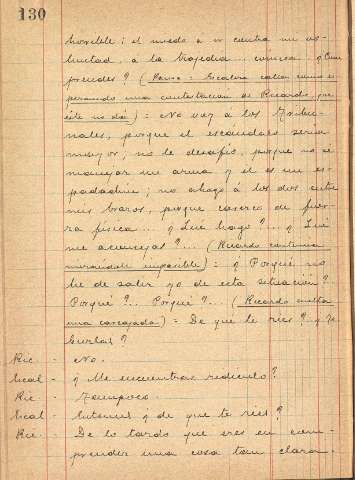 130
horrible: el miedo a ir contra mi vo-
luntad, á la tragedia cómica ¿Com
prendes? (Pausa = Escalera calla como es
perando una contestacion de Ricardo, que
éste no dá) = No voy á los Tribu-
nales, porque el escándalo seria
mayor; no le desafio, porque no se
manejar un arma y él es un es-
padachin; no ahogo á los dos entre
mis brazos, porque carezco de fuer-
za fisica... ¿Que hago?... ¿Qué
me aconsejas?... (Ricardo continua
mirandole impasible) = ¿Porqué no
he de salir yo de esta situación?
Porqué?.. Porqué?... (Ricardo suelta
una carcajada) = De qué te ries? ¿Te
burlas?
Ric - No.
Escal - ¿Me encuentras ridiculo?
Ric - Tampoco.
Escal - Entonces ¿de que te ries?
Ric - De lo tardo que eres en com-
prender una cosa tan clara.